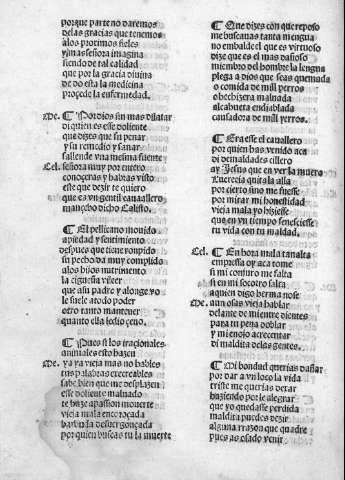 porque parte no daremos
delas gracias que tenemos
alos proximos fieles
y mas señora imagina
siendo de tal calidad
que por la gracia diuina
de do esta la medicina
procede la enfermedad.
Me. ¶ Por dios sin mas dilatar
di quien es esse doliente
dizes que su penar
y su remedio y sanar
sallen de vna mesma fuente
Cel. señora muy por entero
conoceras y hauras visto
este que dezir te quiero
que es vn gentil cauallero
mancebo dicho Calisto.
¶ El pellicano mouido
a piedad y sentimiento
despues que tiene rompido
su pecho da muy complido
alos hijos nutrimento
la cigueña
que asu padre y
le suele a todo poder
otro tanto mantener
quanto ella ledio ceuo.
¶ Pues si los irracionales
animales esto hazen
Me. ya ya vieja mas no hables
tus palabras
sabe bien que me desplazen
esse doliente malnado
te haze apassion mouerte
vieja mala encoroçada
barbuda desuergonçada
por quien buscas tu la muerte
¶ Que dizes con que reposo
me buscauas tanta mengua
no embalde el que es virtuoso
dize que es el mas dañoso
miembro del hombre la lengua
plega a dios que seas quemada
o comida de mill perros
o hechizera malnada
alcahueta endiablada
causadora de mill yerros.
¶ Era esse el cauallero
por quien has venido aca
di demaldades cillero
ay Jesus que en ver la muero
Lucrecia quita la alla
por cierto sino me fuesse
por mirar mi honestidad
vieja mala yo hiziesse
que en vn tiempo fenesciesse
tu vida con tu maldad.
Cel. ¶ En hora mala tan alta
empressa oy aca tome
si mi conjuro me falta
si en mi socorro salta
a quien digo hermano se
Me. aun osas vieja hablar
delante de mi entre dientes
para tu pena doblar
y mi enojo acrecentar
di maldita delas gentes.
¶ Mi bondad querias dañar
por dar a vn loco la vida
triste me querias dexar
haziendo por le alegrar
que yo quedasse perdida
maldita puedes dezir
alguna razon que quadre
pues as osado venir